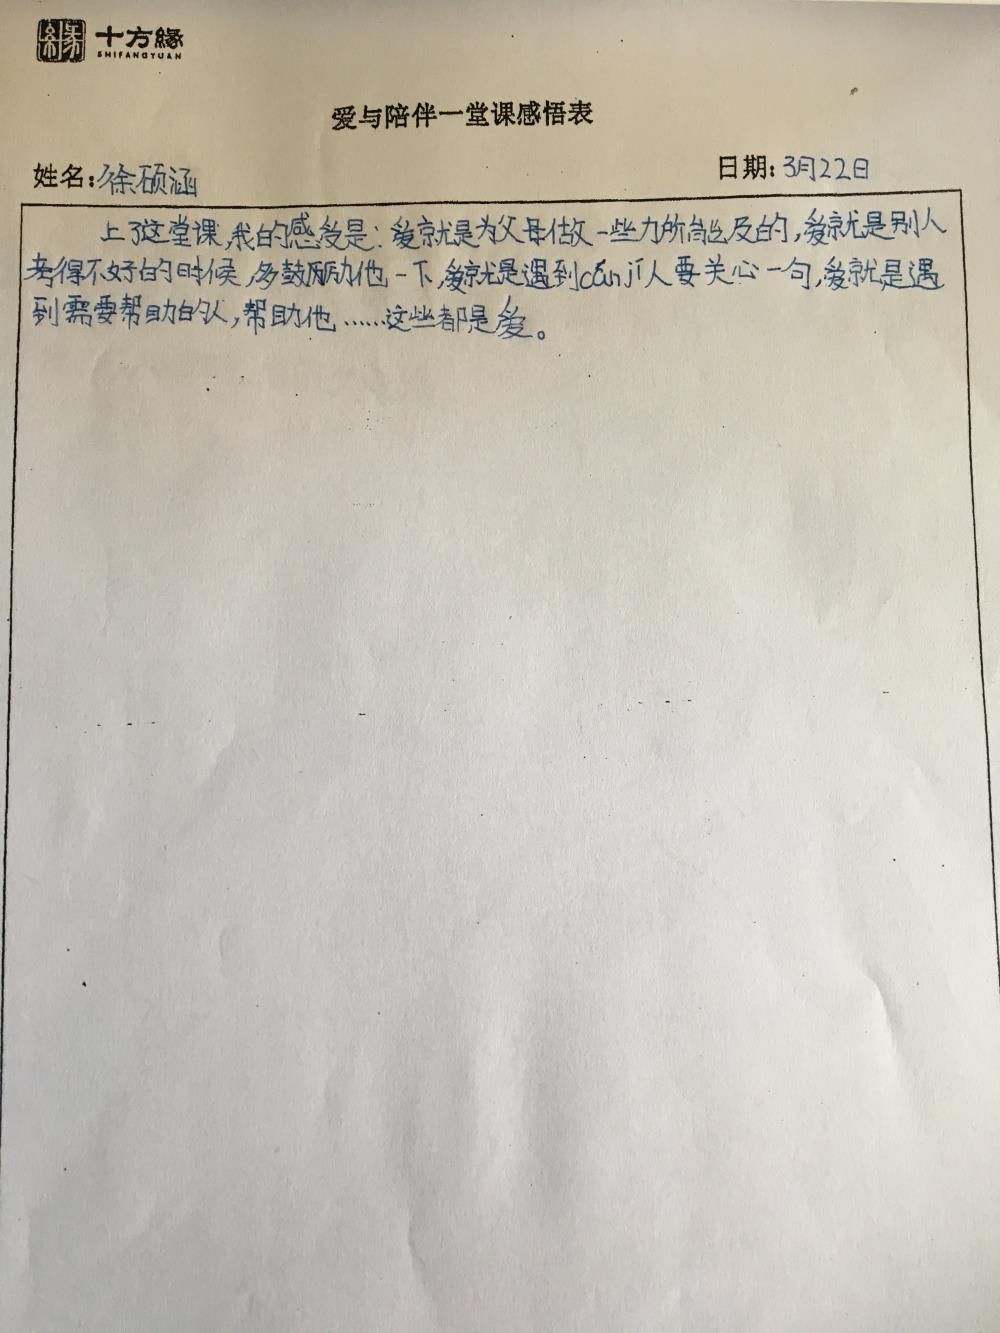 十方緣
SHIFANGYUAN
爱与陪伴一堂课感悟表
姓名:徐硕涵
日期:3月22日
上了这堂课,我的感受是:爱就是为父母做一些力所能及的,爱就是别人
考得不好的时候,多鼓励他一下,爱就是遇到cánjí人要关心一句,爱就是遇
到需要帮助的人,帮助他……这些都是爱。